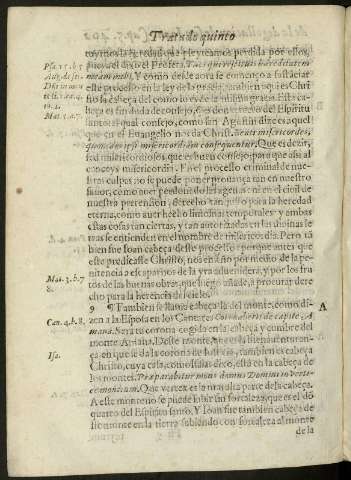 Tratado quinto
tuvimos la heredad
ma y leyeamos perdida por ellos,
pues el dixo el Profeta. Tu es qui restitues hæreditatem
meam mihi. Y como desde aora se començo a sustãciar
este processo en la ley de la gracia, tambien aqui es Chri
sto la cabeça del como lo es de la misma gracia. Esta ca-
beça es sin duda de consejo, y es don del Espiritu
santo: el qual consejo, como san Agustin dize es aquel
que en el Euangelio nos da Christo. Beati misericordes,
quoniam ipsi misericordiam consequentur. Que es dezir,
sed misericordiosos que es buen consejo para que assi al
canceys misericordia. En el processo criminal de nue-
stras culpas no se puede poner prouança tan en nuestro
fauor, como auer perdonado los agenas: ni en el ciuil de
nuestra pretension, derecho tan justo para la heredad
eterna, como auer hecho limosnas temporales: y ambas
estas cosas tan ciertas, y tan autorizadas en las diuinas le
tras se entienden en el nombre de misericordia. Pero tã
bien fue Ioan cabeça deste processo: porque antes que
este predicasse Christo, nos enseño por medio de la pe-
nitencia a escaparnos de la yra aduenidera, y por los fru
tos de las buenas obras, que luego añade, a procurar dere
cho para la herencia del cielo.
9 ¶ Tambien se llama cabeça la del monte, como di-
zen a la Esposa en los Cãtares, Coronaberis de capite, A
mana. Seras coronada de la cabeça y cumbre del
monte Amana. Deste monte
ça, en que se da la corona de justicia, tambien es cabeça
Christo, cuya casa, como Isaias dize, està en la cabeça de
los montes. Præparabitur mons domus Domini in verti-
ce montium. Que vertex es la mas alta parte de la cabeça.
A este monte no se puede subir sin fortaleza, que es el dõ
quarto del Espiritu santo. Y Ioan fue tambien cabeça de
este monte en la
subiendo con fortaleza al monte
de la
Psa. 15. b. 5
Mat. 5. a. 7.
Mat. 3. b. 7
8.
Can. 4. b. 8.
Isa.
A